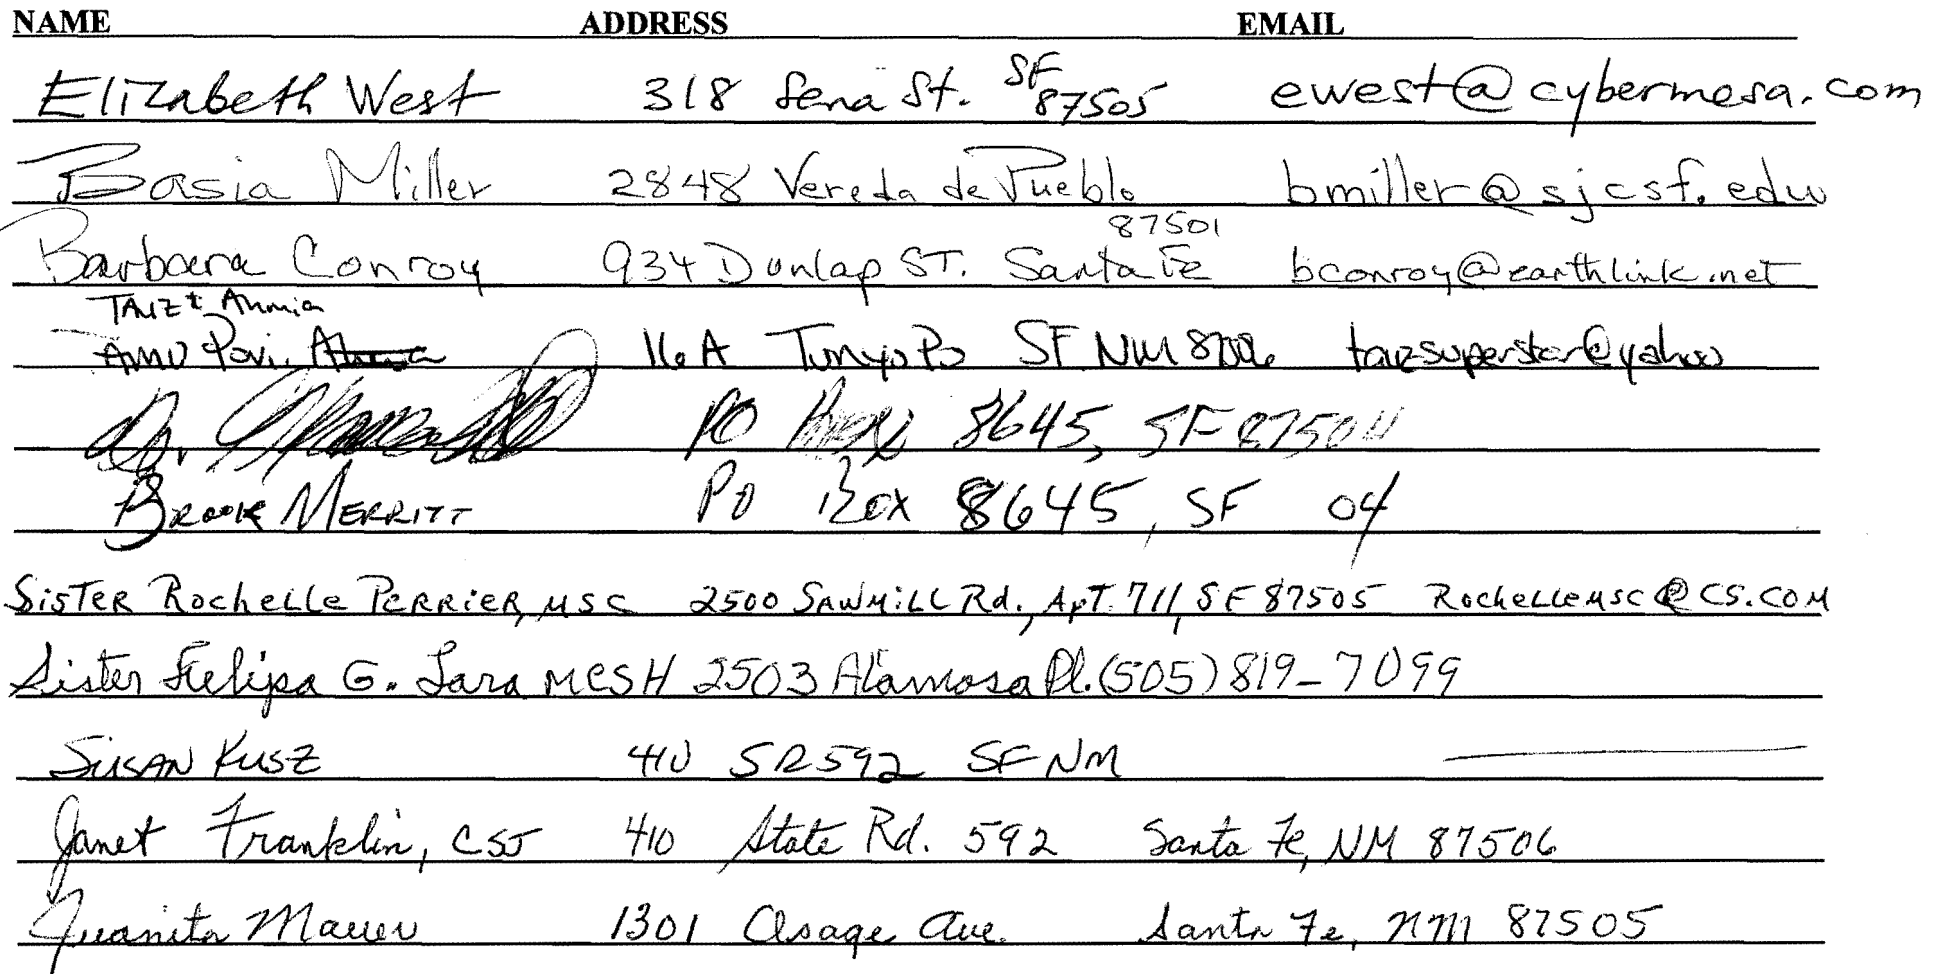 NAME ADDRESS EMAIL
Elizabeth West 318 Sena St. SF 87505 ewest@cybermesa.com
Basia Miller 2848 Vereda de Pueblo bmiller@sjcsf.edu
87501
Barbara Conroy 934 Dunlap ST. Santa Fe bconroy@earthlink.net
Povi 16 A Tunyo Po SF NM tarzsuperstar@yahoo
Dr. PO Box 8645, SF 87504
BROOK MERRITT PO Box 8645, SF 04
SISTER Rochelle PERRIER, MSC 2500 SAWMILL Rd., Apt. 711, SF 87505 RochelleMSC@CS.COM
Sister Felipa G. Lara MCSH 2503 Alamosa Pl. (505) 819-7099
SUSAN KUSZ 410 SR 592 SF NM
Janet Franklin, CSJ 410 State Rd. 592 Santa Fe, NM 87506
Juanita 1301 Osage Ave. Santa Fe, NM 87505